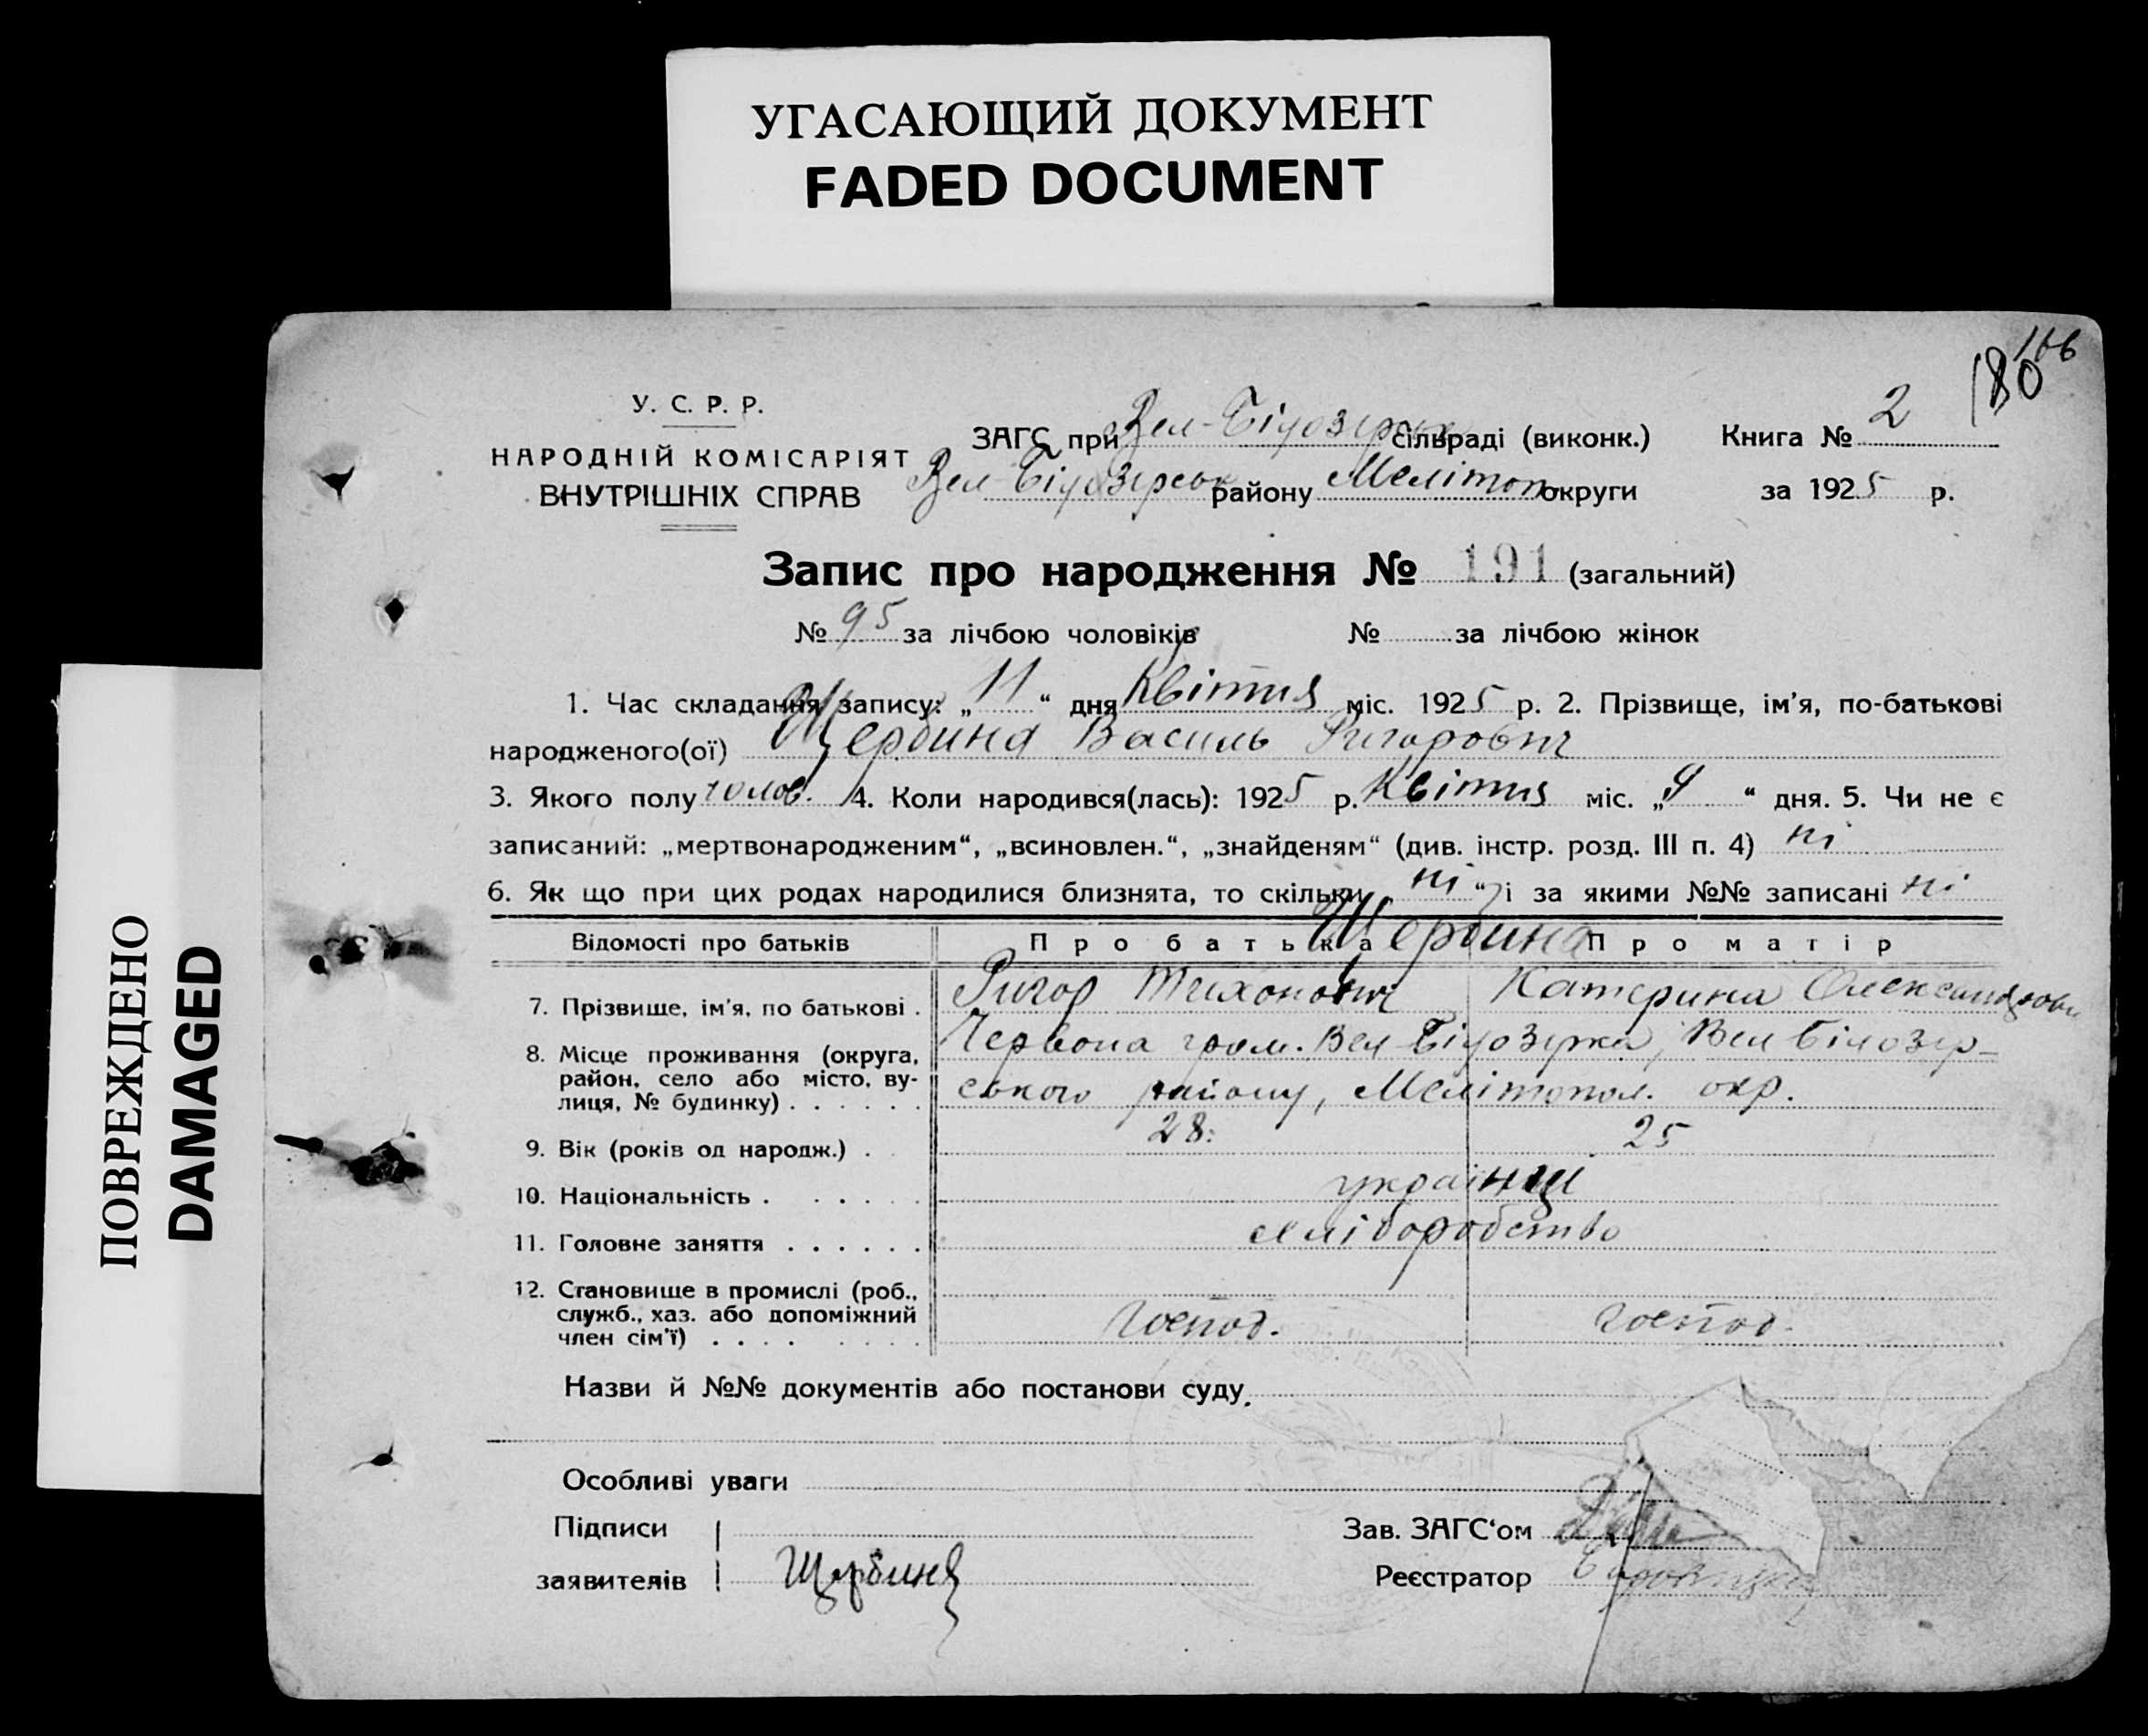 УГАСАЮЩИЙ ДОКУМЕНТ
FADED DOCUMENT
ПОВРЕЖДЕНО
DAMAGED
166
180
У. С. Р. Р.
НАРОДНІЙ КОМІСАРІЯТ
ВНУТРІШНІХ СПРАВ
ЗАГС при Вел-Білозірськ сільраді (виконк.) Книга № 2
Вел-Білозерськ району Мелітоп округи за 1925 р.
Запис про народження № 191 (загальний)
№ 95 за лічбою чоловіків № за лічбою жінок
1. Час складання запису: „11“ дня Квітня міс. 1925 р. 2. Прізвище, ім'я, по-батькові
народженого(ої) Щербина Василь Ригорович
3. Якого полу чолов. 4. Коли народився(лась): 1925 р. Квітня міс. „ “ дня. 5. Чи не є
записаний: „мертвонародженим“, „всиновлен.“, „знайденям“ (див. інстр. розд. III п. 4) ні
6. Як що при цих родах народилися близнята, то скільки ні і за якими №№ записані ні
Відомості про батьків Про батька Про матір
Щербина
7. Прізвище, ім'я, по батькові . Ригор Тихонович Катерина Олександровн
8. Місце проживання (округа, Червона гром. Вел Білозірка, Вел Білозір-
район, село або місто, ву-
лиця, № будинку) . . . . . . ського району, Мелітопол. окр.
9. Вік (років од народж.) . 28. 25
10. Національність . . . . . . українці
11. Головне заняття . . . . . . хліборобство
12. Становище в промислі (роб.,
служб., хаз. або допоміжний
член сім'ї) . . . . . . . . господ. господ.
Назви й №№ документів або постанови суду.
Особливі уваги
Підписи
заявителів Щербина
Зав. ЗАГС‘ом
Реєстратор